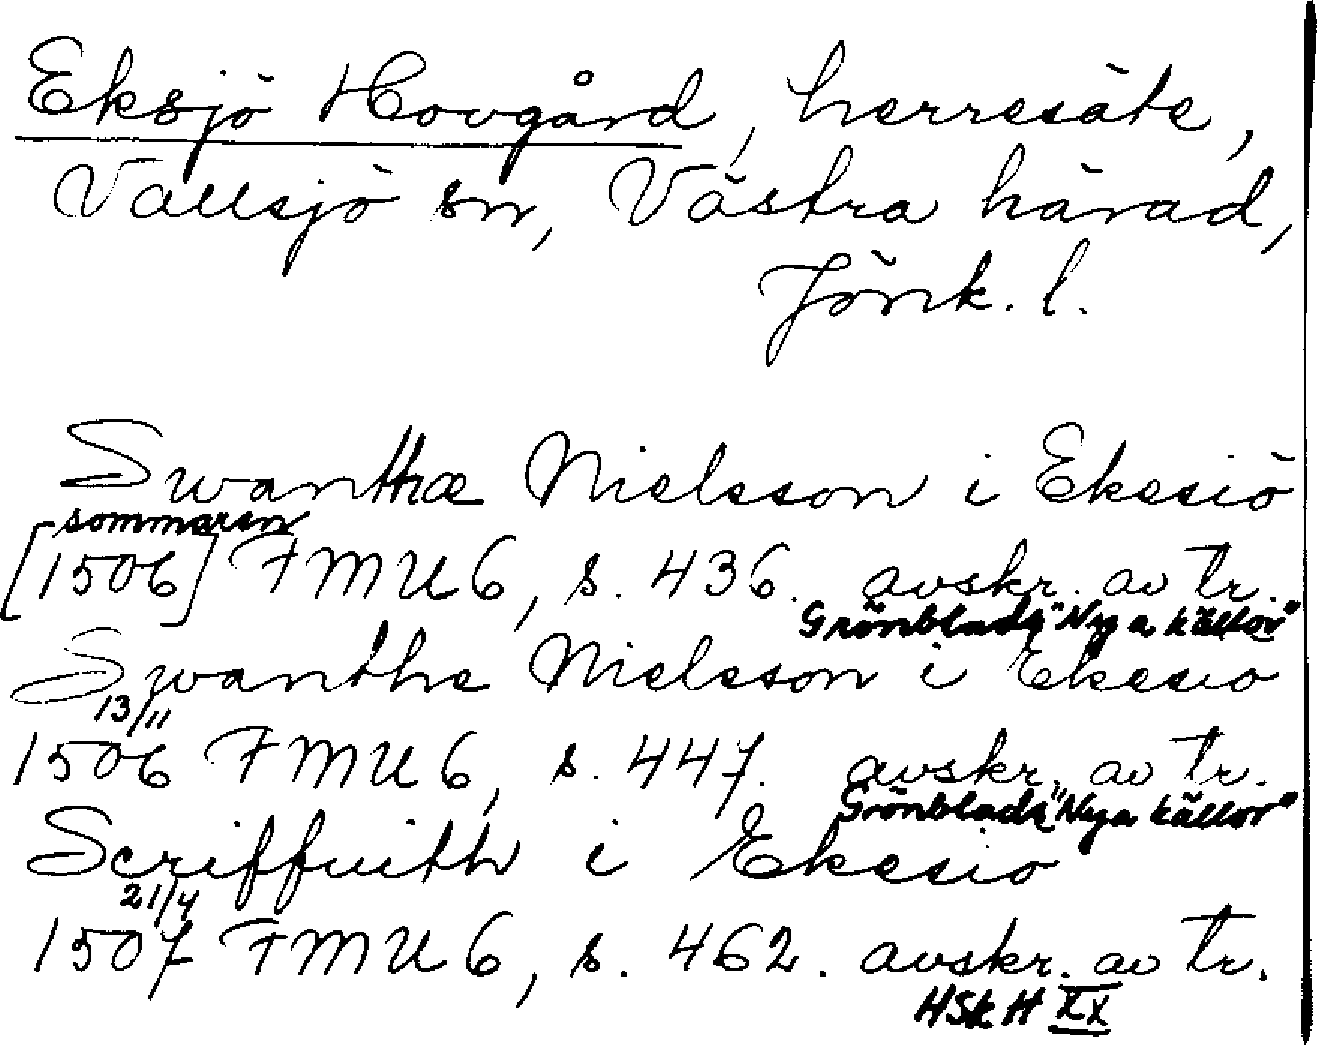 Eksjö Hovgård, herresäte,
Vallsjö sn, Västra härad,
Jönk. l.
Swanthæ Nielsson i Ekesiö
sommaren
[1506] FMU 6, s. 436. avskr. av tr.
Grönblads "Nya källor"
Swanthe Nielsson i Ekesio
13/11
1506 FMU 6, s. 447. avskr. av tr.
Grönblads "Nya källor"
Scriffuith i Ekesio
21/4
1507 FMU 6, s. 462. avskr. av tr.
HSkH XX